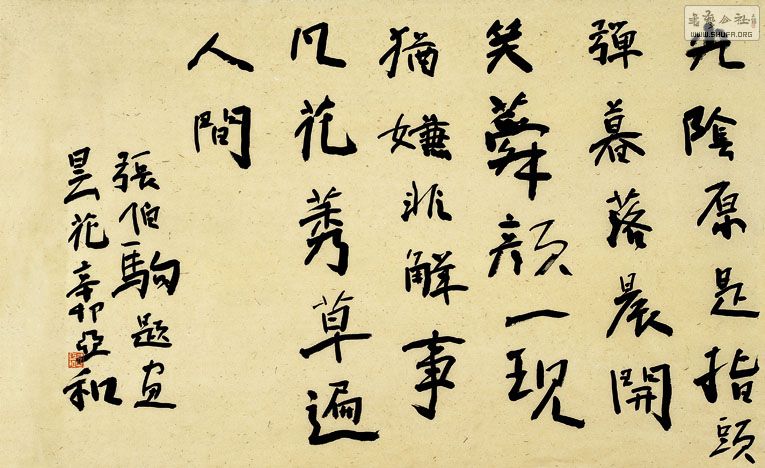 光陰原是指頭
彈暮落晨開
笑蕣顏一現
猶嫌非解事
凡花莠草遍
人間
張伯駒題画
昙花辛卯亞和
書藝公社
WWW.SHUFA.ORG